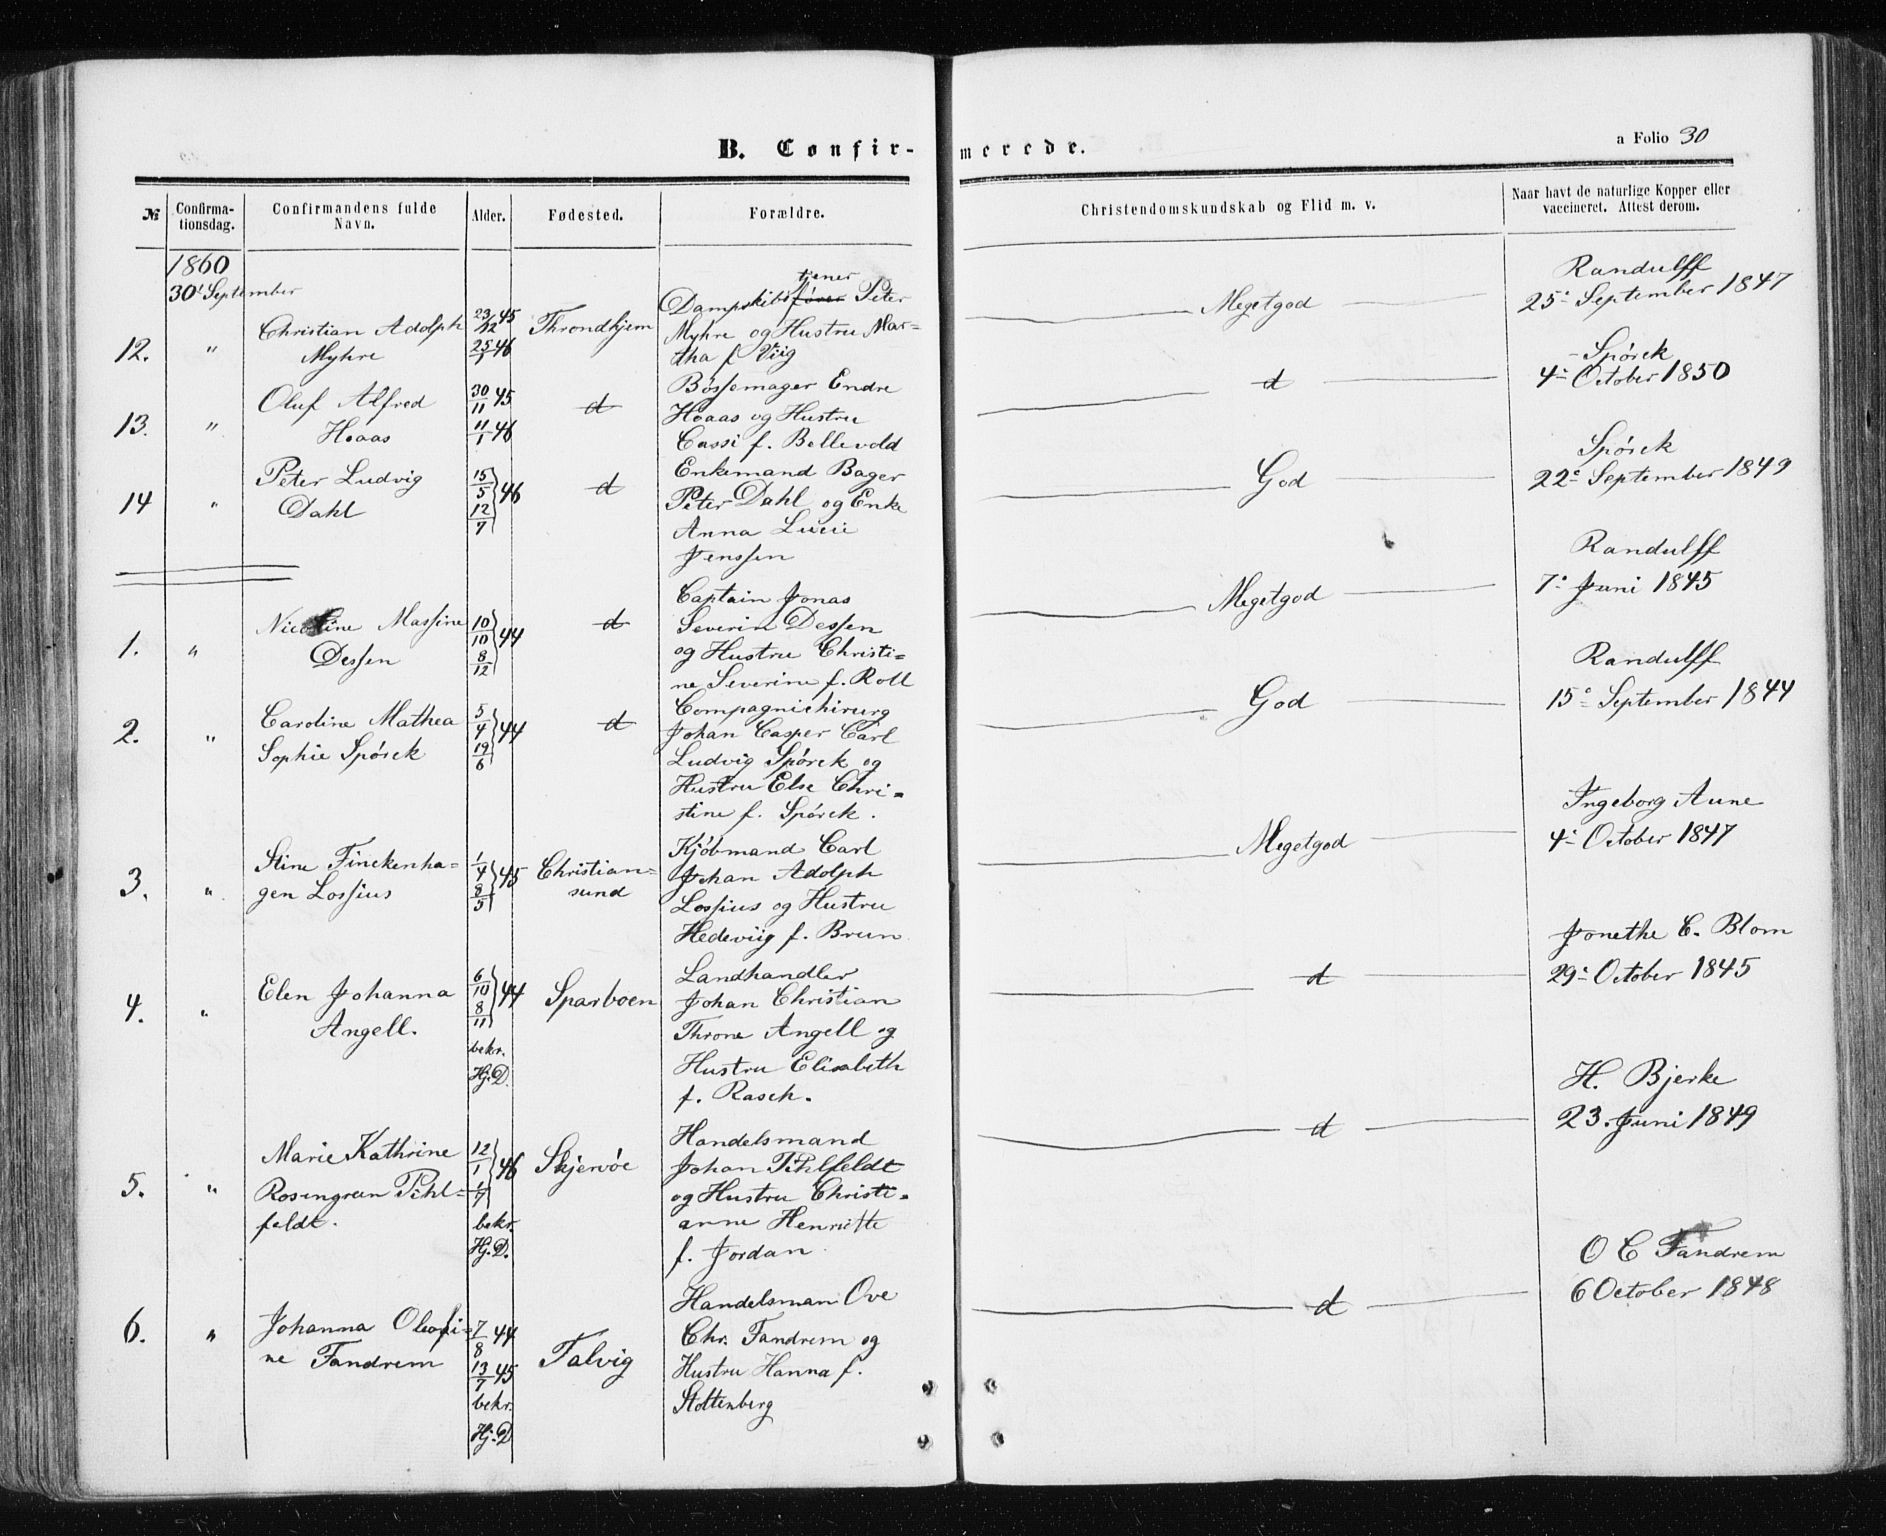 B. Confirmerede.
a Folio 30
№ Confirmationsdag. Confirmandens fulde Navn. Alder. Fødested. Forældre. Christendomskundskab og Flid m. v. Naar havt de naturlige Kopper eller vaccineret. Attest derom.
1860
30' September
12. " Christian Adolph Myhre
23/12 45
25/1 46
Throndhjem
tjener
Dampskibsfører Peter
Myhre og Hustru Mar-
tha f Viig
Megetgod
Randulff
25 September 1847
13. " Oluf Alfred Hoaas
30/11 45
11/1 46
d
Bøssemager Endre
Hoaas og Hustru
Cassi f. Bellevold
d
Spörck
4 October 1850
14 " Peter Ludvig Dahl
15/5 12/7 46
d
Enkemand Bager
Peter Dahl og Enke
Anna Lucie
Jenssen
God
Spörck
22 September 1849
1. " Nicoline Massine Dessen
10/10 8/12 44
d
Captain Jonas
Severin Dessen
og Hustru Christi=
ne Severine f. Roll
Megetgod
Randulff
7. Juni 1845
2. " Caroline Mathea
Sophie Spörck
5/4 19/6 44
d
Compagnichirurg
Johan Casper Carl
Ludvig Spörck og
Hustru Else Chri=
stine f. Spörck.
God
Randulff
15 September 1844
3. " Stine Finckenha-
gen Lossius
1/4 8/5 45
Christian=
sund
Kjöbmand Carl
Johan Adolph
Lossius og Hustru
Hedeviig f. Brun
Megetgod
Ingeborg Aune
4 October 1847
4. " Elen Johanna
Angell.
6/10 8/11 44
bekr.
Hj. D.
Sparboen
Landhandler
Johan Christian
Throne Angell og
Hustru Elisabeth
f. Rasch.
d
Jonethe C. Blom
29 October 1845
5. " Marie Kathrine
Rosengreen Pihl=
feldt.
12/1 1/7 46
bekr.
Hj. D.
Skjervöe
Handelsmand
Johan Pihlfeldt
og Hustru Christi=
anne Henriette
f. Jordan
d
H. Bjerke
23. Juni 1849
6. " Johanna Oleofi=
ne Tandrem
7/8 44
13/7 45
bekr.
Hj. D
Talvig
Handelsman Ove
Chr. Tandrem og
Hustru Hanna f.
Stoltenberg
d
O C Tandrem
6 October 1848